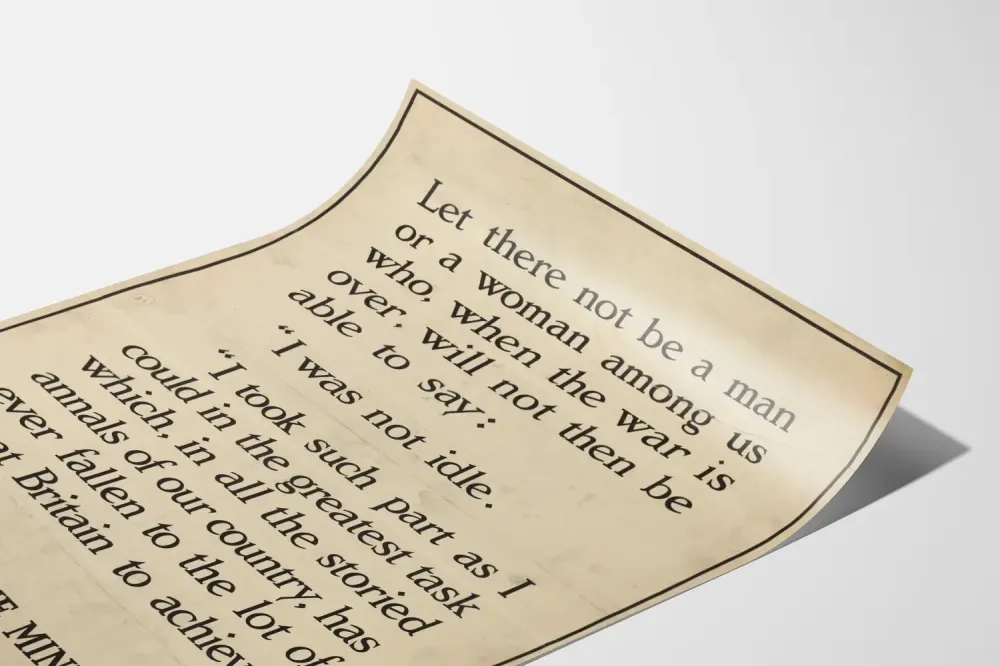 Let there not be a man
or a woman among us
who, when the war is
over, will not then be
able to say:
“I was not idle.
“I took such part as I
could in the greatest task
which, in all the storied
annals of our country, has
ever fallen to the lot of
Britain to